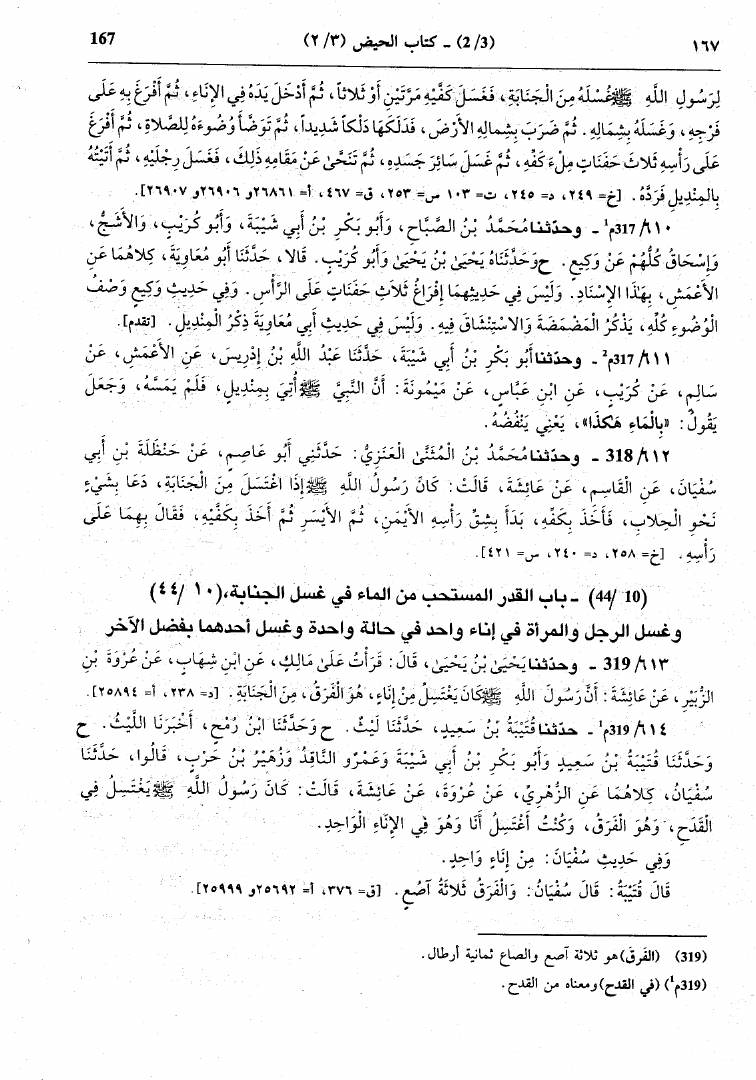 167 (2/3) - كتاب الحيض (٢/٣) ١٦٧
لِرَسُولِ اللَّهِ ﷺ غُسْلَهُ مِنَ الْجَنَابَةِ، فَغَسَلَ كَفَّيْهِ مَرَّتَيْنِ أَوْ ثَلاثاً، ثُمَّ أَدْخَلَ يَدَهُ فِي الإِنَاءِ، ثُمَّ أَفْرَغَ بِهِ عَلَى
فَرْجِهِ، وَغَسَلَهُ بِشِمَالِهِ. ثُمَّ ضَرَبَ بِشِمَالِهِ الأَرْضَ، فَدَلَكَهَا دَلْكاً شَدِيداً، ثُمَّ تَوَضَّأَ وُضُوءَهُ لِلصَّلاةِ، ثُمَّ أَفْرَغَ
عَلَى رَأْسِهِ ثَلاثَ حَفَنَاتٍ مِلْءَ كَفِّهِ، ثُمَّ غَسَلَ سَائِرَ جَسَدِهِ، ثُمَّ تَنَحَّىٰ عَنْ مَقَامِهِ ذَلِكَ، فَغَسَلَ رِجْلَيْهِ، ثُمَّ أَتَيْتُهُ
بِالمِنْدِيلِ فَرَدَّهُ. [خ= ٢٤٩، د= ٢٤٥، ت= ١٠٣ س= ٢٥٣، ق= ٤٦٧، أ= ٢٦٨٦١ و ٢٦٩٠٦ و ٢٦٩٠٧].
٦١٠/317م¹ - وحدّثنا مُحَمَّدُ بْنُ الصَّبَّاحِ، وَأَبُو بَكْرِ بْنُ أَبِي شَيْبَةَ، وَأَبُو كُرَيْبٍ، وَالأَشَجُّ،
وَإِسْحَاقُ كُلُّهُمْ عَنْ وَكِيعٍ. ح وَحَدَّثَنَاهُ يَحْيَىٰ بْنُ يَحْيَىٰ وَأَبُو كُرَيْبٍ. قَالا، حَدَّثَنَا أَبُو مُعَاوِيَةَ، كِلاهُمَا عَنِ
الأَعْمَشِ، بِهٰذَا الإِسْنَادِ. وَلَيْسَ فِي حَدِيثِهِمَا إِفْرَاغُ ثَلاثِ حَفَنَاتٍ عَلَى الرَّأْسِ. وَفِي حَدِيثِ وَكِيعٍ وَصْفُ
الْوُضُوءِ كُلِّهِ، يَذْكُرُ الْمَضْمَضَةَ وَالاسْتِنْشَاقَ فِيهِ. وَلَيْسَ فِي حَدِيثِ أَبِي مُعَاوِيَةَ ذِكْرُ الْمِنْدِيلِ. [تقدم].
٦١١/317م² - وحدّثنا أَبُو بَكْرِ بْنُ أَبِي شَيْبَةَ، حَدَّثَنَا عَبْدُ اللَّهِ بْنُ إِدْرِيسَ، عَنِ الأَعْمَشِ، عَنْ
سَالِمٍ، عَنْ كُرَيْبٍ، عَنِ ابْنِ عَبَّاسٍ، عَنْ مَيْمُونَةَ: أَنَّ النَّبِيَّ ﷺ أُتِيَ بِمِنْدِيلٍ، فَلَمْ يَمَسَّهُ، وَجَعَلَ
يَقُولُ: «بِالْمَاءِ هَكَذَا»، يَعْنِي يَنْفُضُهُ.
٦١٢/318 - وحدّثنا مُحَمَّدُ بْنُ الْمُثَنَّىٰ الْعَنَزِيُّ: حَدَّثَنِي أَبُو عَاصِمٍ، عَنْ حَنْظَلَةَ بْنِ أَبِي
سُفْيَانَ، عَنِ الْقَاسِمِ، عَنْ عَائِشَةَ، قَالَتْ: كَانَ رَسُولُ اللَّهِ ﷺ إِذَا اغْتَسَلَ مِنَ الْجَنَابَةِ، دَعَا بِشَيْءٍ
نَحْوِ الْحِلابِ، فَأَخَذَ بِكَفِّهِ، بَدَأَ بِشِقِّ رَأْسِهِ الأَيْمَنِ، ثُمَّ الأَيْسَرِ ثُمَّ أَخَذَ بِكَفَّيْهِ، فَقَالَ بِهِمَا عَلَى
رَأْسِهِ. [خ= ٢٥٨، د= ٢٤٠، س= ٤٢١].
(10/ 44) - باب القدر المستحب من الماء في غسل الجنابة، (١٠/ ٤٤)
وغسل الرجل والمرأة في إناء واحد في حالة واحدة وغسل أحدهما بفضل الآخر
٦١٣/319 - وحدّثنا يَحْيَىٰ بْنُ يَحْيَىٰ، قَالَ: قَرَأْتُ عَلَىٰ مَالِكٍ، عَنِ ابْنِ شِهَابٍ، عَنْ عُرْوَةَ بْنِ
الزُّبَيْرِ، عَنْ عَائِشَةَ: أَنَّ رَسُولَ اللَّهِ ﷺ كَانَ يَغْتَسِلُ مِنْ إِنَاءٍ، هُوَ الْفَرَقُ، مِنَ الْجَنَابَةِ. [د= ٢٣٨، أ= ٢٥٨٩٤].
٦١٤/319م¹ - حدّثنا قُتَيْبَةُ بْنُ سَعِيدٍ، حَدَّثَنَا لَيْثٌ. ح وَحَدَّثَنَا ابْنُ رُمْحٍ، أَخْبَرَنَا اللَّيْثُ. ح
وَحَدَّثَنَا قُتَيْبَةُ بْنُ سَعِيدٍ وَأَبُو بَكْرِ بْنُ أَبِي شَيْبَةَ وَعَمْرٌو النَّاقِدُ وَزُهَيْرُ بْنُ حَرْبٍ، قَالُوا، حَدَّثَنَا
سُفْيَانُ، كِلاهُمَا عَنِ الزُّهْرِيِّ، عَنْ عُرْوَةَ، عَنْ عَائِشَةَ، قَالَتْ: كَانَ رَسُولُ اللَّهِ ﷺ يَغْتَسِلُ فِي
الْقَدَحِ، وَهُوَ الْفَرَقُ، وَكُنْتُ أَغْتَسِلُ أَنَا وَهُوَ فِي الإِنَاءِ الْوَاحِدِ.
وَفِي حَدِيثِ سُفْيَانَ: مِنْ إِنَاءٍ وَاحِدٍ.
قَالَ قُتَيْبَةُ: قَالَ سُفْيَانُ: وَالْفَرَقُ ثَلاثَةُ آصُعٍ. [ق= ٣٧٦، أ= ٢٥٦٩٢ و ٢٥٩٩٩].
(319) (الفَرَق) هو ثلاثة آصع والصاع ثمانية أرطال.
(319م¹) (في القدح) ومعناه من القدح.